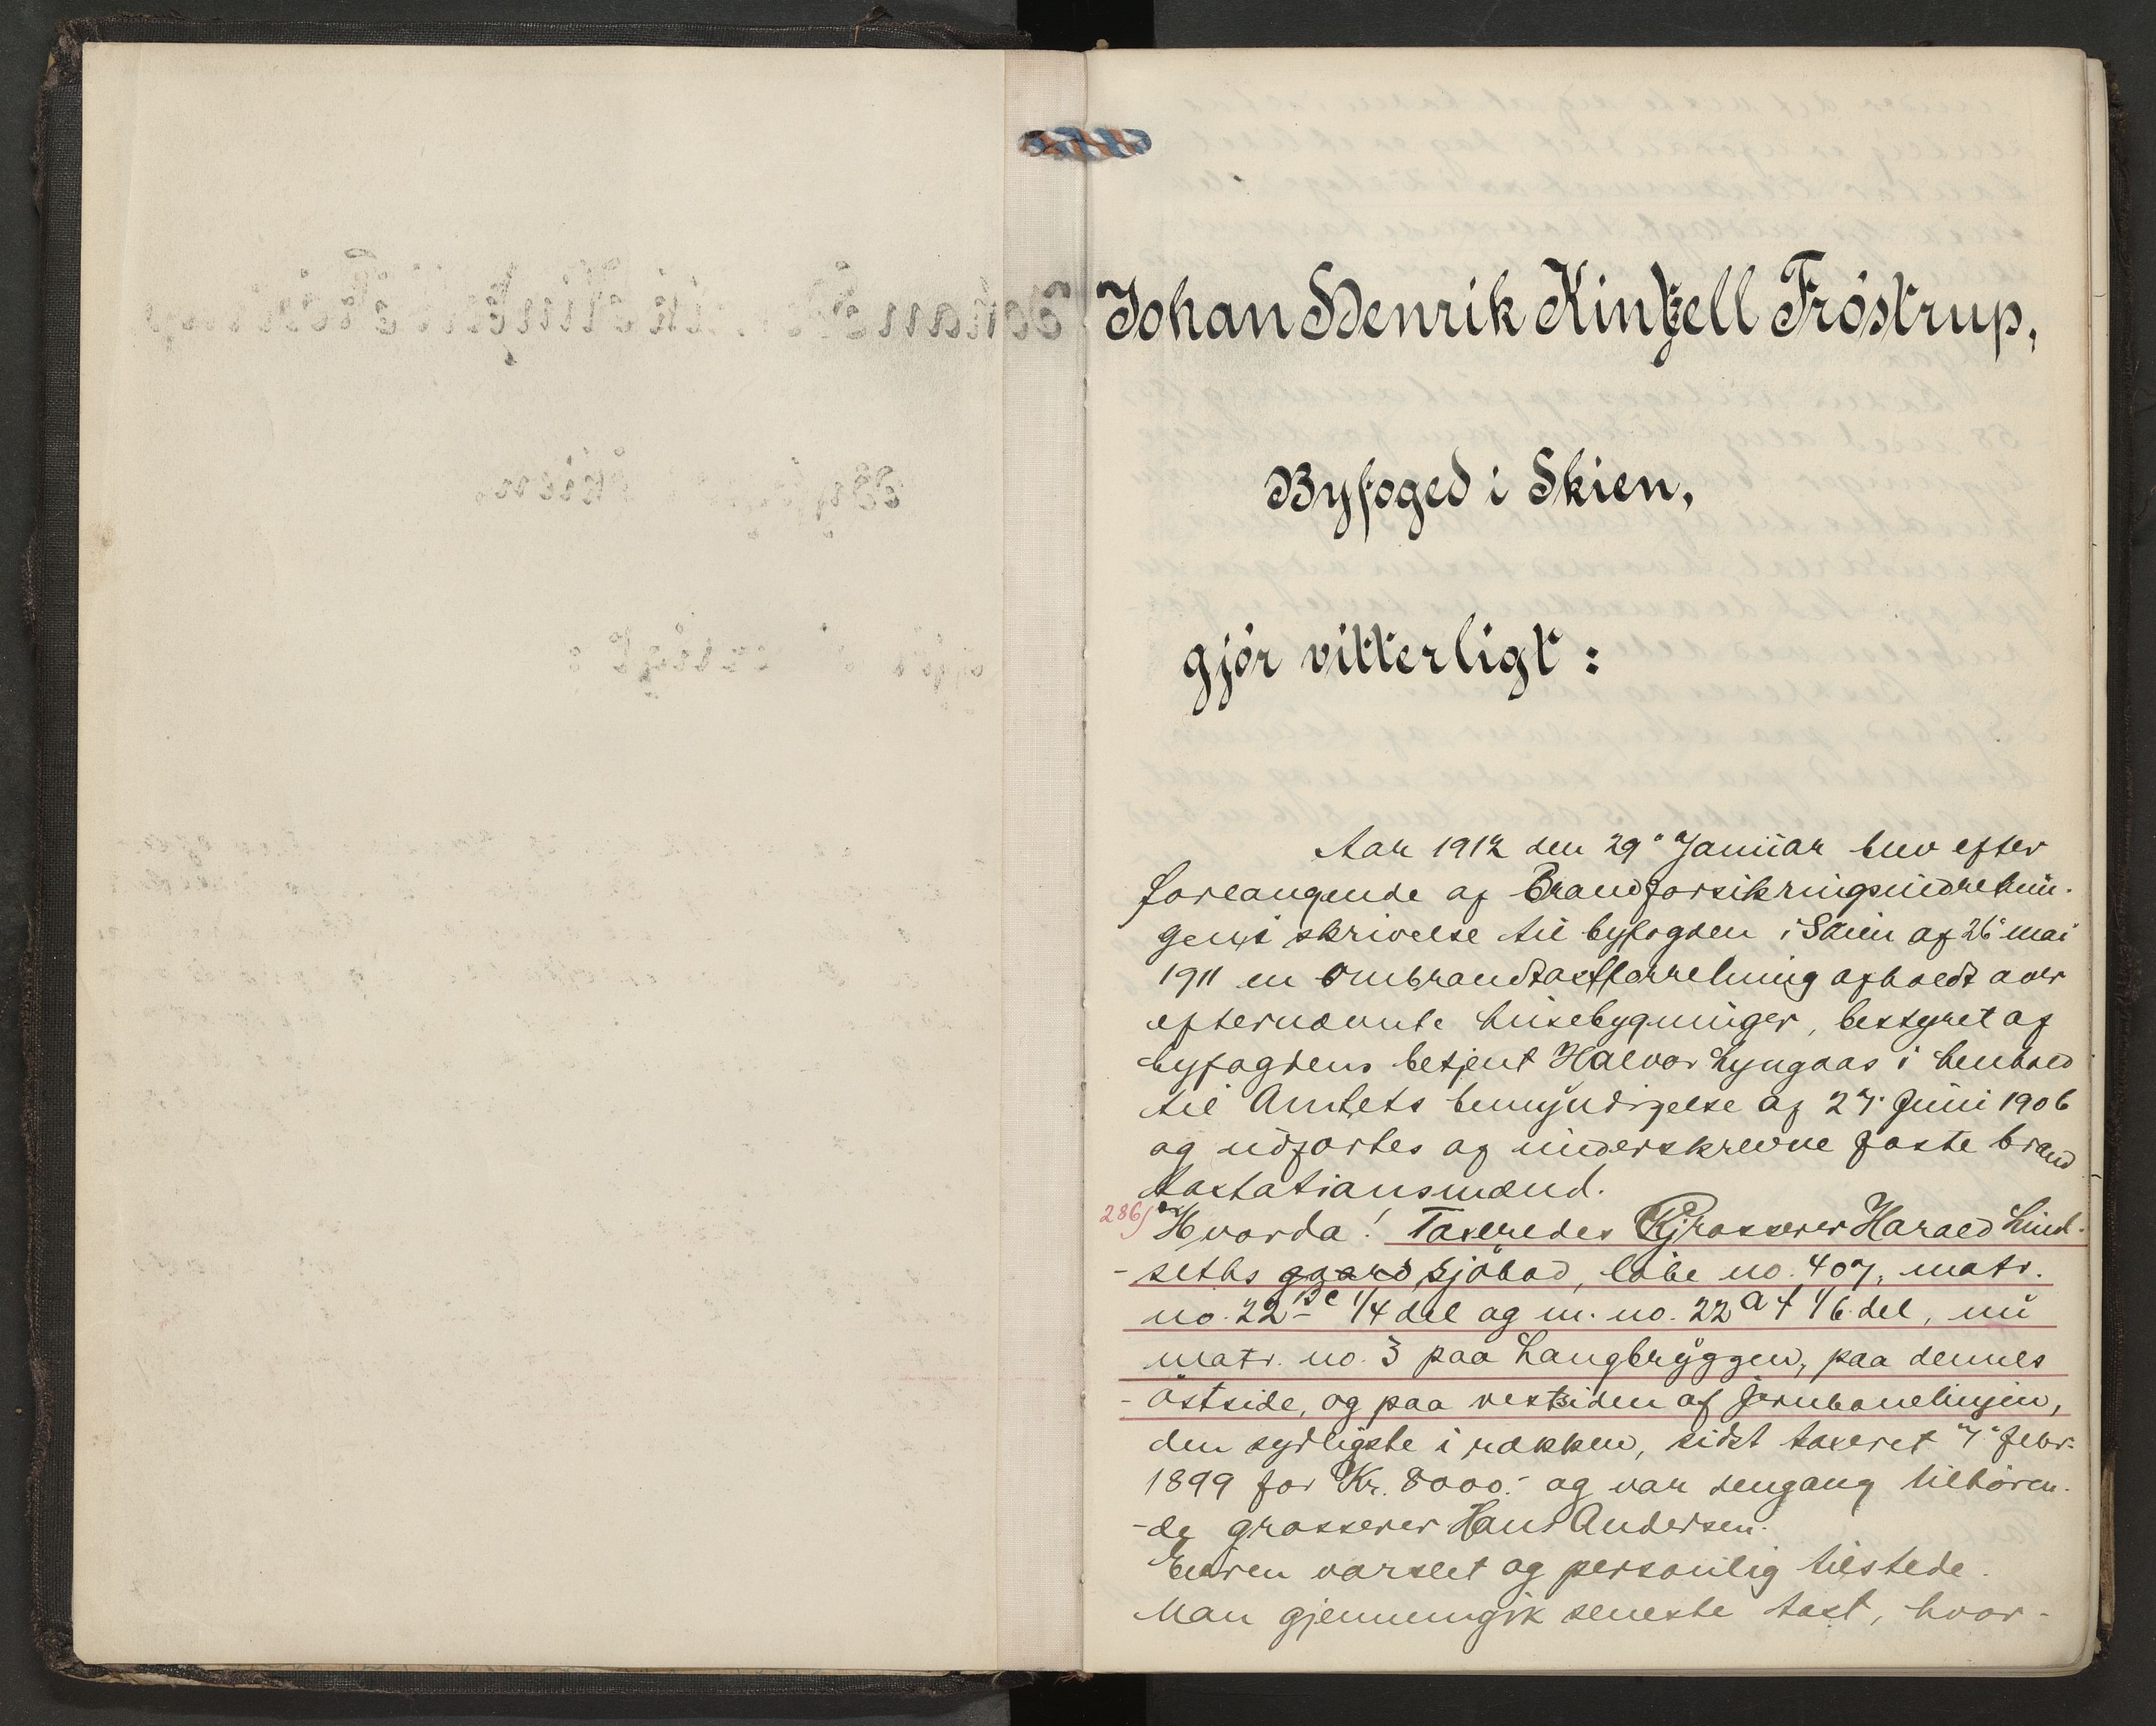 Johan Henrik Kintzell Fröstrup,
Byfoged i Skien,
gjör vitterligt:
Aar 1912 den 29' Januar blev efter
forlangende af Brandforsikringsindretnin-
gens skrivelse til byfogden i Skien af 26' mai
1911 en ombrandtaxtforretning afholdt over
efternævnte husebygninger, bestyret af
byfogdens betjent Halvor Lyngaas i henhold
til Amtets bemyndigelse af 27' Juni 1906
og udfortes af underskrevne faste brand
taxtationsmænd.
286/ Hvorda! Taxeredes Grosserer Harald Lind-
-seths gaard, Sjöbod, löbe no. 407, matr.
no. 22 Be 1/4 del og m. no. 22 a f 1/6 del, nu
matr. no. 3 paa Langbryggen, paa dennes
- östside, og paa vestsiden af jernbanelinjen,
den sydligste i rækken, sidst taxeret 7' febr.
1899 for Kr. 8000.- og var dengang tilhören-
-de grosserer Hans Andersen.
Eieren varslet og personlig tilstede.
Man gjennemgik seneste taxt, hvor-